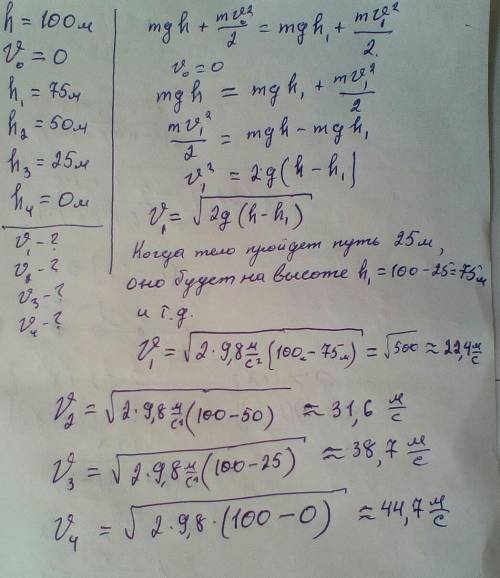 h = 100м
v₀ = 0
h₁ = 75м
h₂ = 50м
h₃ = 25м
h₄ = 0м
v₁ - ?
v₂ - ?
v₃ - ?
v₄ - ?
mgh + mv₀²/2 = mgh₁ + mv₁²/2
v₀ = 0
mgh = mgh₁ + mv₁²/2
mv₁²/2 = mgh - mgh₁
v₁² = 2·g(h - h₁)
v₁ = √(2g(h - h₁))
Когда тело пройдет путь 25м,
оно будет на высоте h₁ = 100 - 25 = 75м
и т.д.
v₁ = √(2·9,8 м/с² (100м - 75м)) = √500 ≈ 22,4 м/с
v₂ = √(2·9,8 м/с² (100 - 50)) ≈ 31,6 м/с
v₃ = √(2·9,8 м/с² (100 - 25)) ≈ 38,7 м/с
v₄ = √(2·9,8·(100 - 0)) ≈ 44,7 м/с